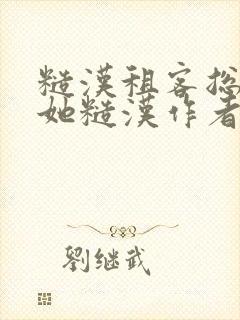 糙漢租客挖
她糙漢作者
劉继武